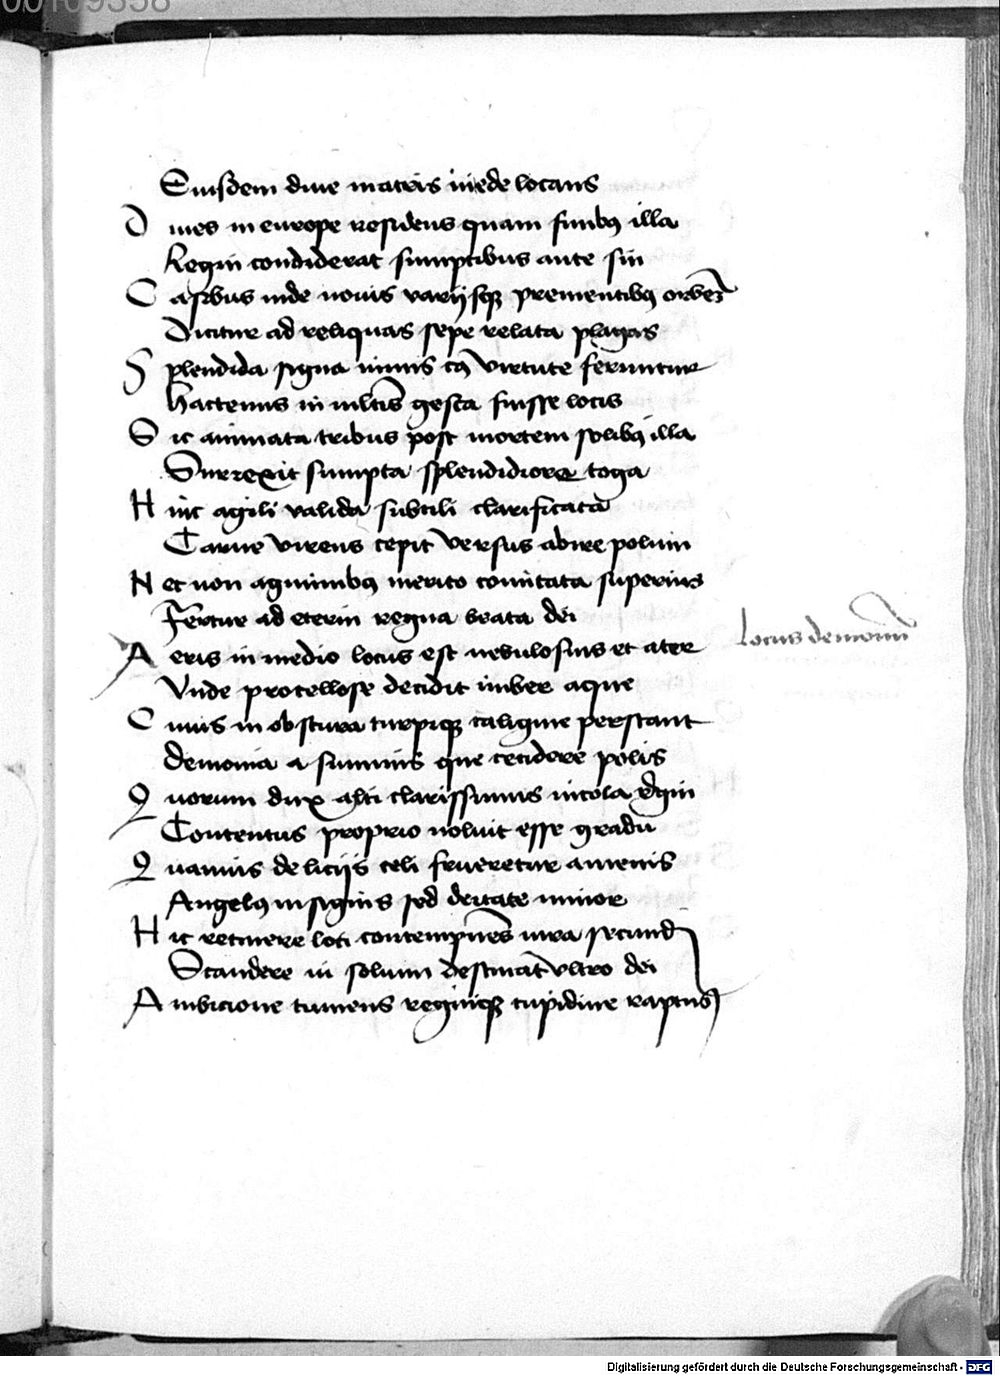 00109358
Eiusdem diue matris in ede locans
Diues in europe residens quam finibꝫ illa
Regin condiderat sumptibus ante sin
Casibus inde nouis varijsqꝫ prementibꝫ orbem
Dicitur ad reliquas sepe relata plagas
Splendida signa nimis virtute feruntur
Hactenus in multis gesta fuisse locis
Sic animata tribus post mortem solibꝫ illa
Surrexit sumpta splendidiore toga
Hinc agili valida subtili clarificata
Carne virens cepit versus abire polum
Nec non agminibꝫ merito comitata superius
Fertur ad eterni regna beata dei
Aeris in medio locus est nebulosus et ater
Locus demonum
Vnde procellose decidit imber aque
Cuius in obscura turpiqꝫ caligine perstant
Demonia a summis que cecidere polis
Quorum dux alti clarissimus incola regni
Contentus proprio noluit esse gradu
Quamuis delicijs celi frueretur amenis
Angelꝫ insignis sed deitate minor
Hic retinere loci contempnens iura secundi
Scandere in solium destinat vltro dei
Ambicione tumens regniqꝫ cupidine raptus
Digitalisierung gefördert durch die Deutsche Forschungsgemeinschaft - DFG